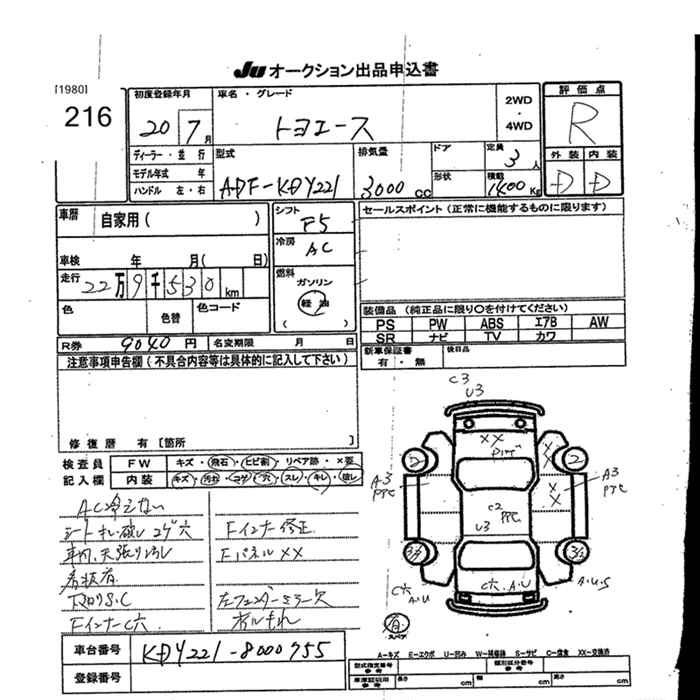 Ju オークション出品申込書
[1980]
216
初度登録年月 20 7月
車名・グレード トヨエース
2WD・4WD
評価点 R
ディーラー・並行
モデル年式 年
ハンドル 左・右
型式 ADF-KDY221
排気量 3000 CC
ドア
形状
定員 3人
積載 1400 Kg
外装 D 内装 D
車歴 自家用( )
シフト F5
セールスポイント(正常に機能するものに限ります)
車検 年 月( 日)
冷房 AC
走行 22万9千530km
燃料 ガソリン
軽油
( )
色 色替 色コード
装備品(純正品に限り○を付けてください)
PS PW ABS エアB AW
SR ナビ TV カワ
R券 9040円 名変期限 月 日
新車保証書 有・無
後日品
注意事項申告欄(不具合内容等は具体的に記入して下さい)
修復歴 有[箇所 ]
検査員記入欄
FW キズ・飛石・ヒビ割・リペア跡・×要
内装 キズ・汚れ・コゲ・穴・スレ・キレ・破レ
AC冷えない
シートキレ破レコゲ穴
Fインナー修正
Fパネル XX
下回りS.C
左フェンダーミラー欠
FインナーC穴
オルもれ
C3
U3
XX
A3
C2
U3
A3
XX
C穴 A.U
C穴
A.U
A.U.S
スペア
車台番号 KDY221-8000755
登録番号
A-キズ E-エクボ U-凹み W-補修跡 S-サビ C-腐食 XX-交換済
型式指定番号 参考
類別区分番号 参考
車庫証明用 参考 長さ cm 幅 cm 高さ cm